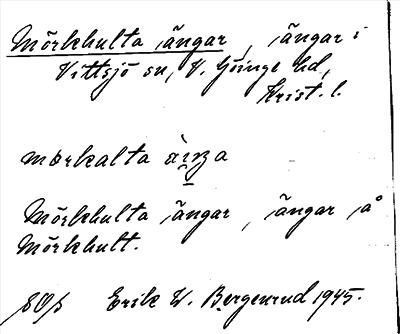 Mörkhulta ängar, ängar i
Vittsjö sn, V. Göinge hd,
Krist. l.
mørkalta
Mörkhulta ängar, ängar på
Mörkhult.
Erik W. Bergenrud 1945.